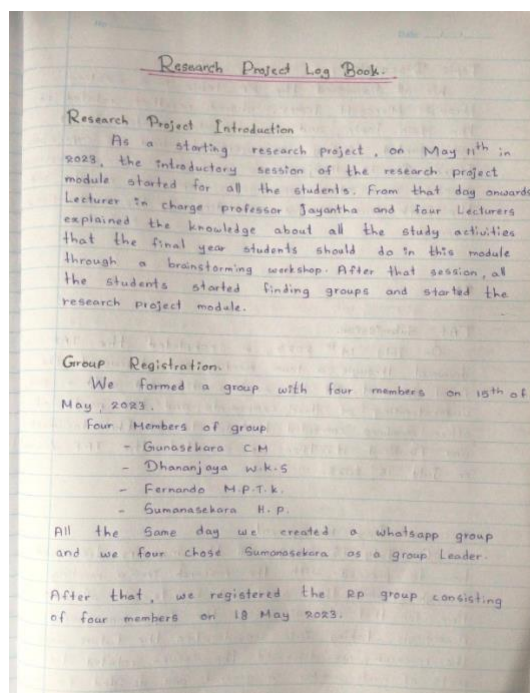 No
Date
Research Project Log Book.
Research Project Introduction
As a starting research project, on May 11th in
2023, the introductory session of the research project
module started for all the students. From that day onwards
Lecturer in charge professor Jayantha and four Lecturers
explained the knowledge about all the study activities
that the final year students should do in this module
through a brainstorming workshop. After that session, all
the students started finding groups and started the
research project module.
Group Registration.
We formed a group with four members on 15th of
May, 2023.
Four Members of group
- Gunasekara C.M
- Dhananjaya W.K.S
- Fernando M.P.T.K.
- Sumanasekara H.P.
All the same day we created a whatsapp group
and we four chose Sumanasekara as a group Leader.
After that, we registered the RP group consisting
of four members on 18 May 2023.